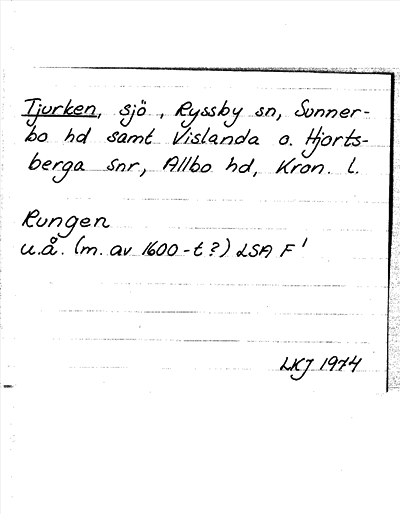 Tjurken, sjö, Ryssby sn, Sunner-
bo hd samt Vislanda o. Hjorts-
berga snr, Allbo hd, Kron. l.
Rungen
u.å. (m. av 1600-t?) LSA F¹
LKJ 1974